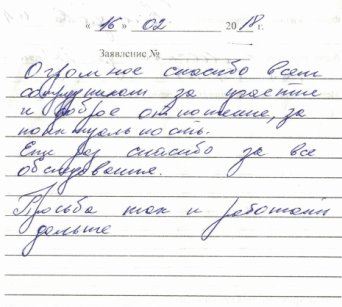 « 16 » 02 2018 г.
Заявление №
Огромное спасибо всем
сотрудникам за участие
и доброе отношение, за
пунктуальность.
Еще раз спасибо за все
обследования.
Просьба так и работать
дальше